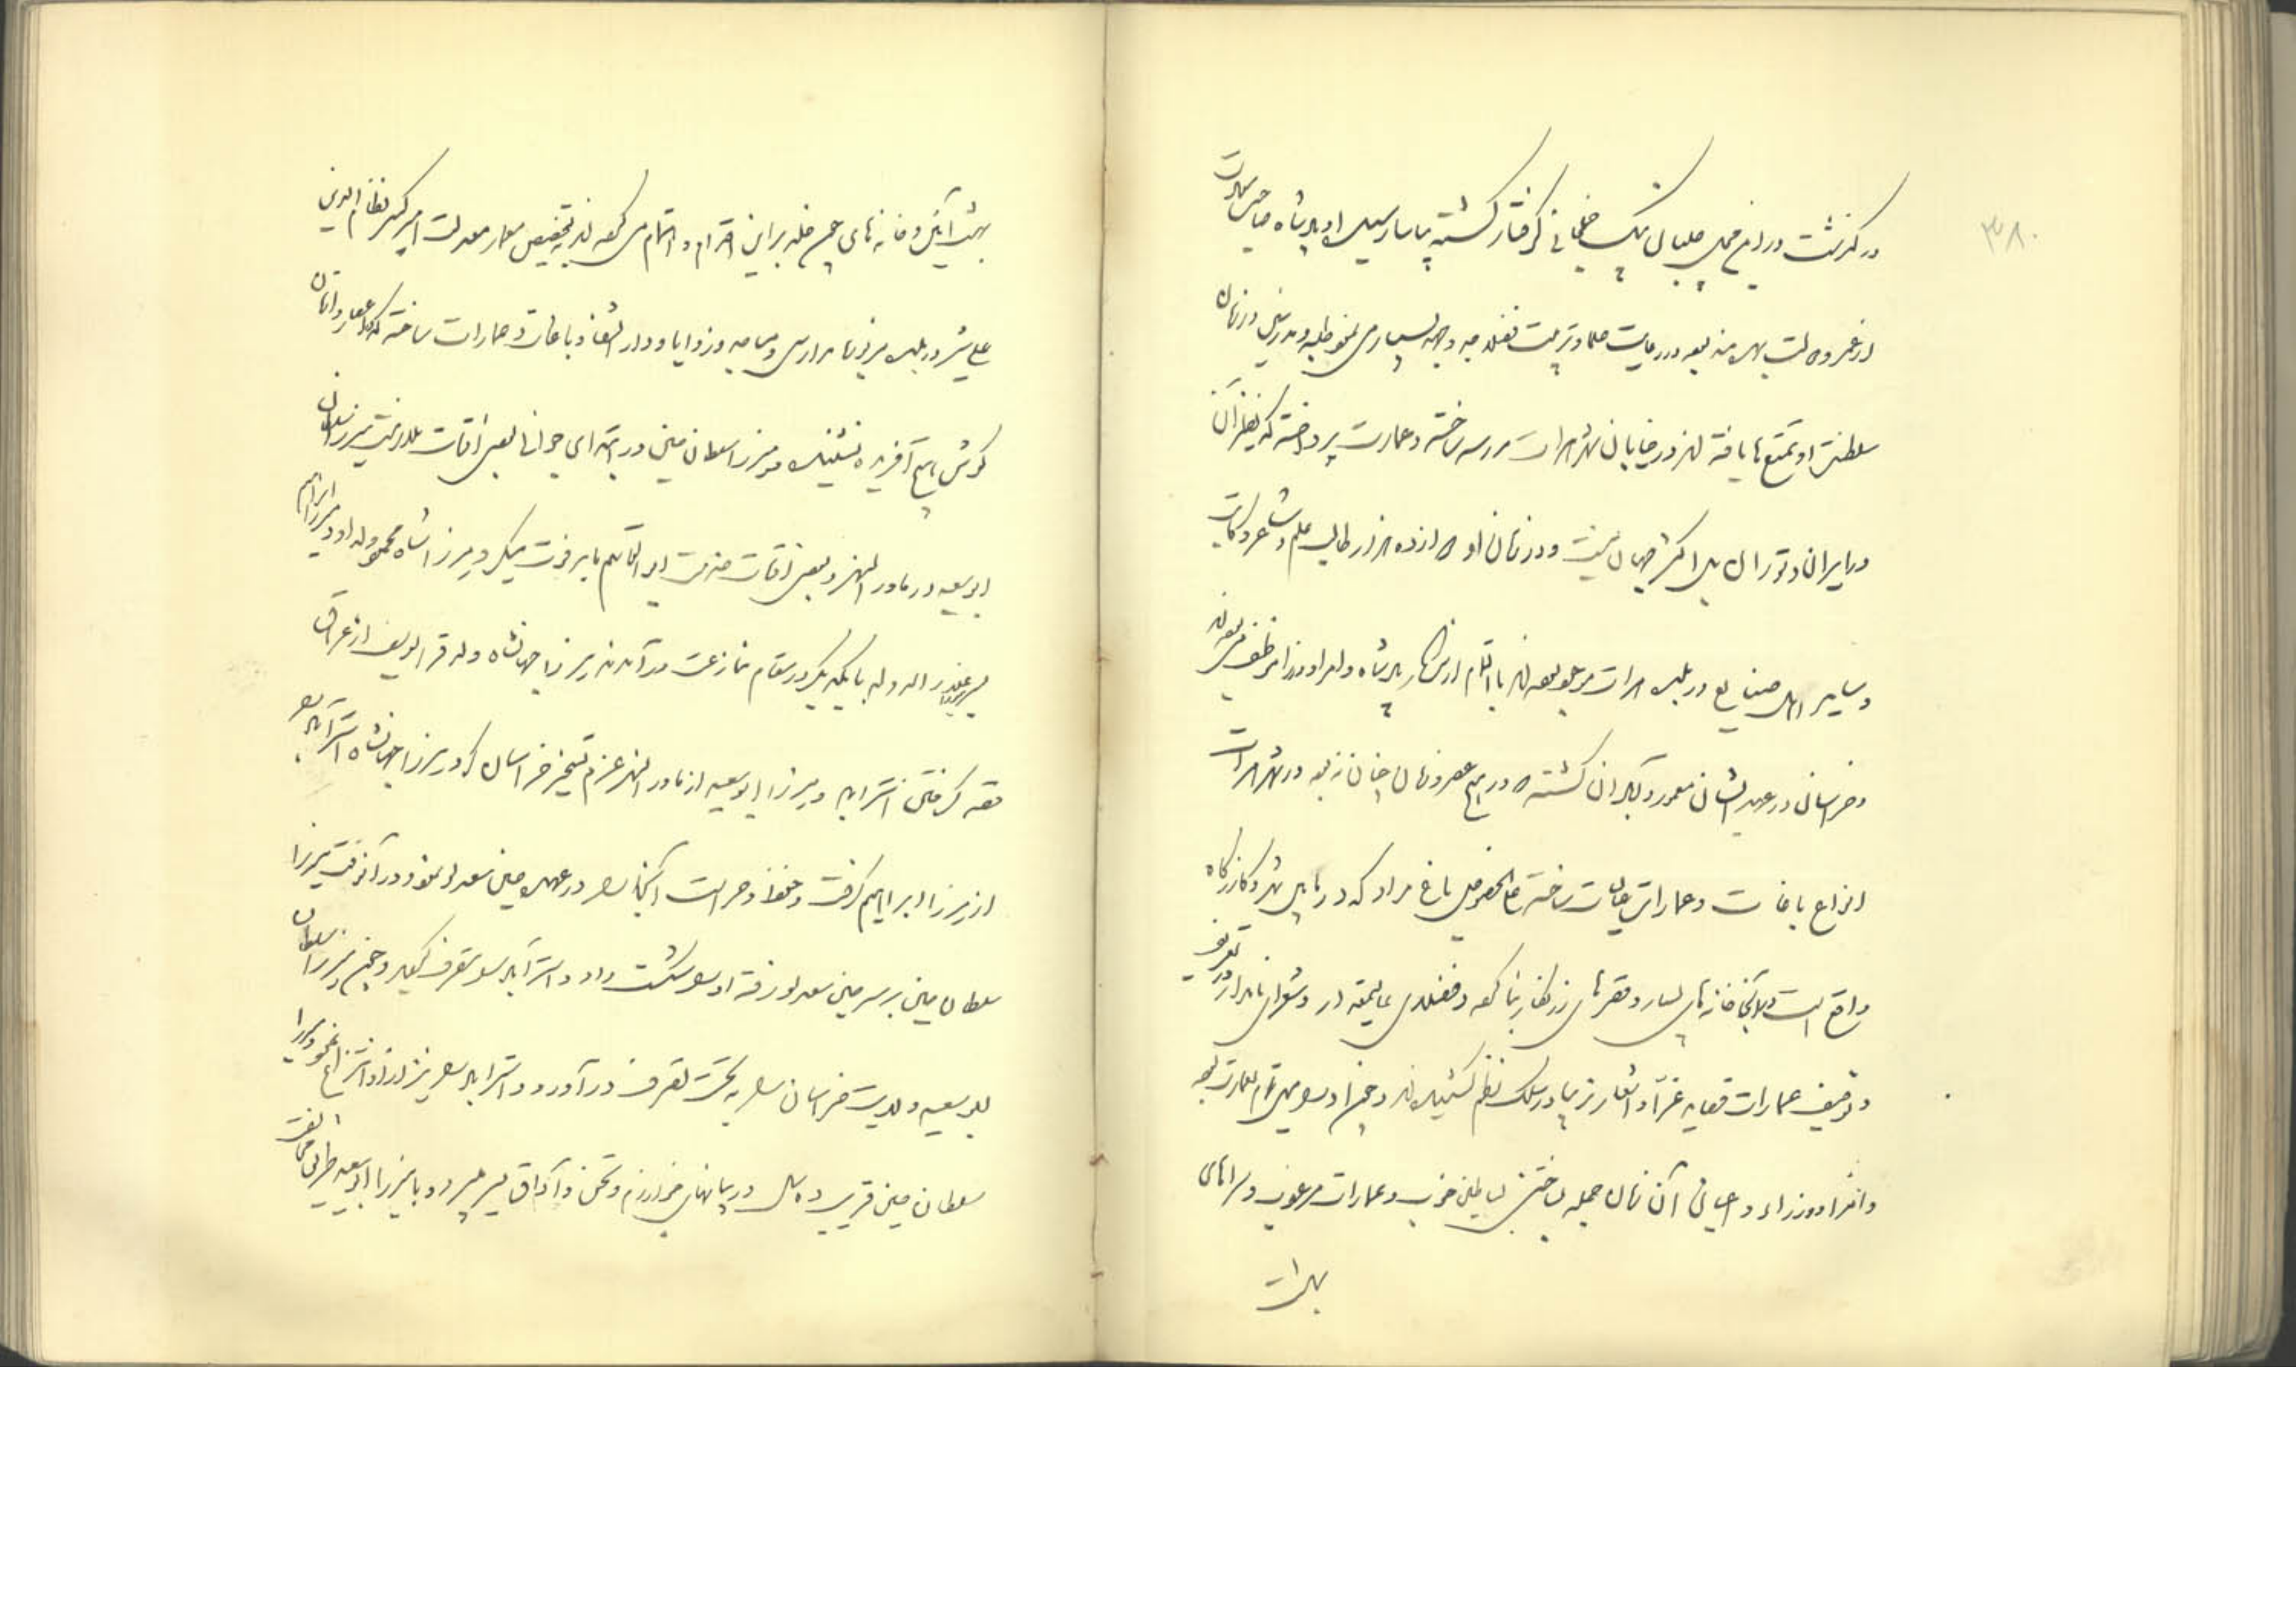 ۳۸۰
درگذشت و در باغ گرفتار گشته بیاسا رسید و او پادشاه صاحب سعادت
از عمر و دولت بهره‌مند بوده و در رعایت علما و تربیت فضلا جد و جهد بسیار می نمود طلبه و مدرسین در زمان
سلطنت او تمتع‌ها یافته‌اند و در خیابان شهر هرات مدرسه ساخته و عمارت پرداخته که نظیر آن
در ایران و توران بل اکثر جهان نیست و در زمان او دوازده هزار طالب علم و شاعر
و سایر اهل صنایع در بلده هرات بوده‌اند با تمام از سرکار پادشاه و امرا و وزرا موظف می بوده‌اند
و خراسان در عهد ایشان معمور و آبادان گشته در هیچ عصر و زمان چنان نبود و در شهر هرات
انواع باغات و عمارات عالیات ساخته علی‌الخصوص باغ مراد که در مابین شهر و گازرگاه
واقع است و در آنجا خانه‌های بسیار و قصرهای زرنگار بنا کرده و فضلای عالیمقدار و شعرای نامدار در تعریف
و توصیف عمارات قصاید غرّا و اشعار زیبا در سلک نظم کشیده‌اند و چون او را میل تمام بعمارت بود
و امرا و وزراء و اعیان آن زمان جمله بساختن بساطین خوب و عمارات مرغوب و سراهای
بهشت
بهشت آئین و خانه‌های چون خلد برین اقدام و اهتمام می کرده‌اند بتخصیص معمار معدلت امیر کبیر نظام‌الدین
علی شیر در بلده مزبور مدارس و مساجد و زوایا و دارالشفا و باغات و عمارات ساخته
گوش هیچ آفریده نشنیده و میرزا سلطان حسین در ابتدای جوانی بعضی اوقات بملازمت میرزا سلطان
ابوسعید در ماوراءالنهر و بعضی اوقات خدمت ابوالقاسم بابر فوت میکرد میرزا شاه محمود ولد او و میرزا ابراهیم
ولد میرزا علاءالدوله با یکدیگر در مقام منازعت درآمدند میرزا جهانشاه ولد قرا یوسف از عراق
قصد گرفتن استراباد و میرزا ابوسعید از ماوراءالنهر عزم تسخیر خراسان کرد میرزا جهانشاه استراباد را
از میرزا ابراهیم گرفت و حفظ و حراست آنجا را در عهده حسین سعدلو نمود و در آنوقت میرزا
سلطان حسین بر سر حسین سعدلو رفته او را شکست داد و استراباد را متصرف گردید و چون میرزا سلطان
ابوسعید ولایت خراسان را به تحت تصرف درآورد و استراباد را نیز از او انتزاع نمود میرزا
سلطان حسین قریب ده سال در بیابانهای خوارزم و تخن و آداق بسر میبرد و با میرزا ابوسعید طریق مخالفت